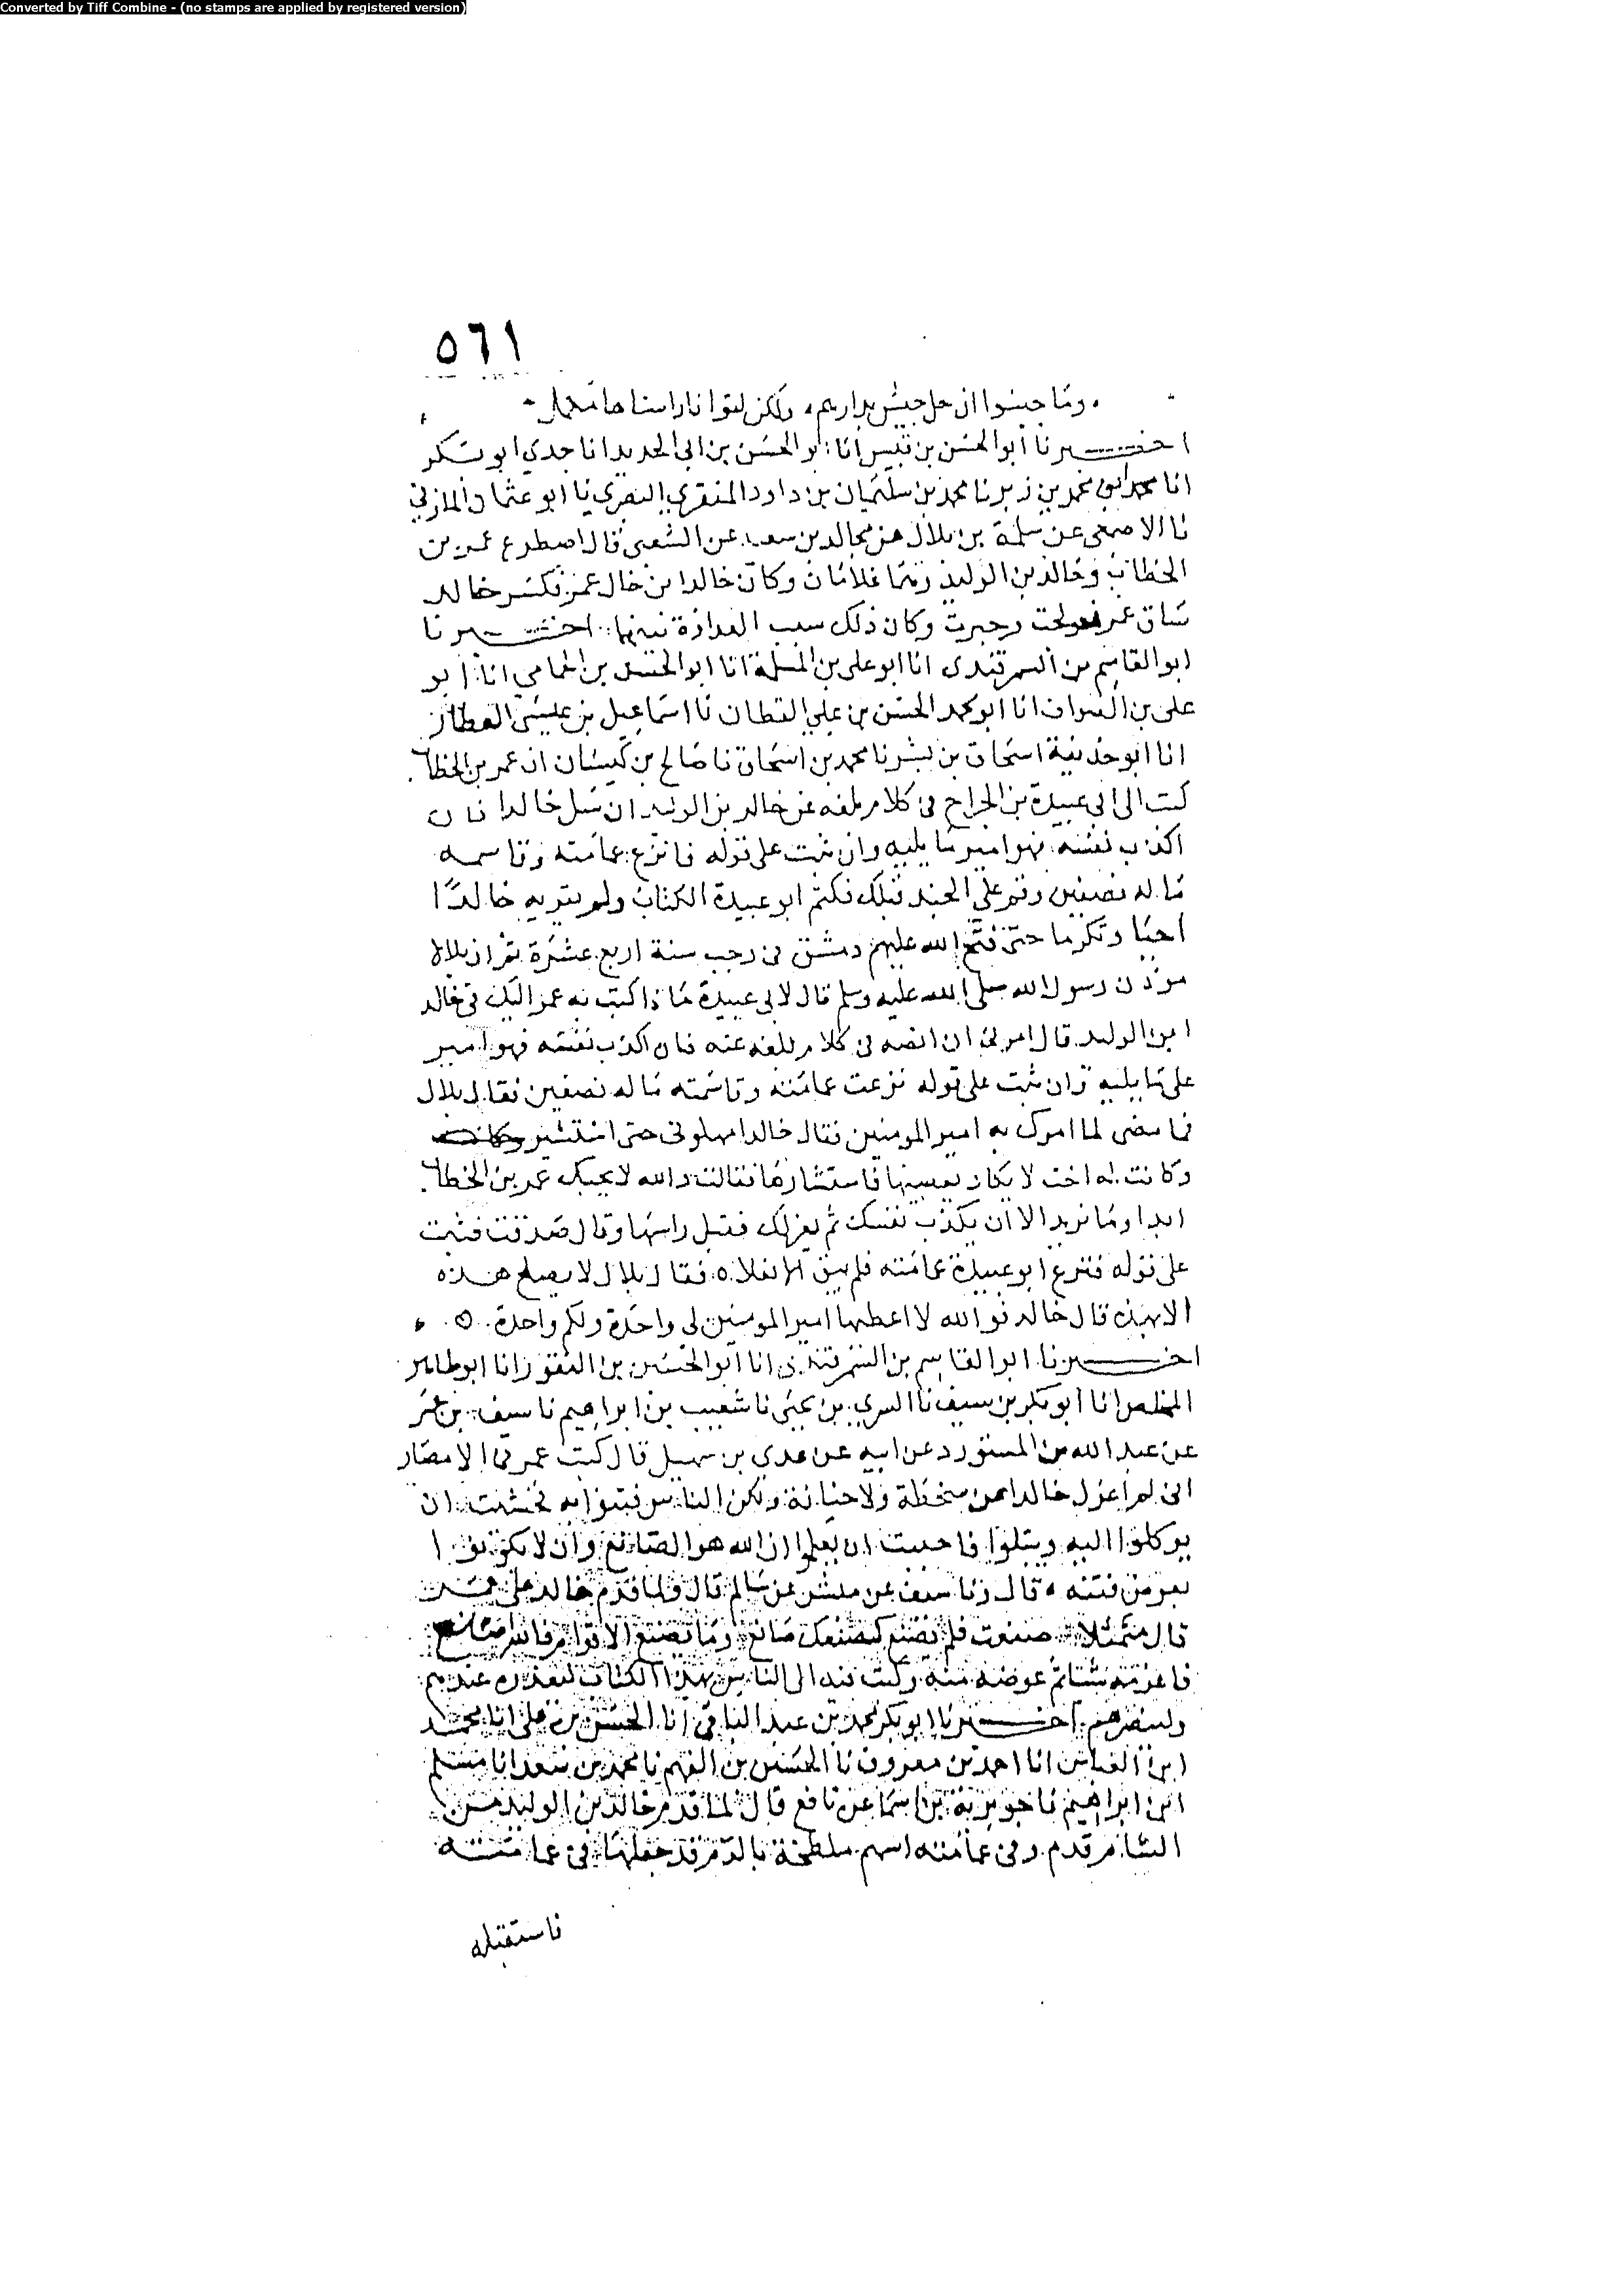 Converted by Tiff Combine - (no stamps are applied by registered version)
٥٦١
وما جبنوا ان حل جيش بدارهم ولكن لقوا نارا سناها
اخبرنا ابوالحسن بن قبيس انا ابوالحسن بن ابي الحديد انا جدي ابو بكر
انا محمد بن زبر نا محمد بن سليمان بن داود المنقري البصري نا ابو عثمان المازني
نا الاصمعي عن سلمة بن بلال عن مجالد بن سعيد عن الشعبي قال اصطرع عمر بن
الخطاب وخالد بن الوليد وهما غلامان وكان خالد ابن خال عمر فكسر خالد
ساق عمر فعولجت وجبرت وكان ذلك سبب العداوة بينهما اخبرنا
ابوالقاسم بن السمرقندي انا ابو علي بن المسلمة انا ابوالحسن بن الحمامي انا ابو
علي بن الصواف انا ابو محمد الحسن بن علي القطان نا اسماعيل بن عيسى العطار
انا ابو حذيفة اسحاق بن بشر نا محمد بن اسحاق نا صالح بن كيسان ان عمر بن الخطاب
كتب الى ابي عبيدة بن الجراح في كلام بلغه عن خالد بن الوليد ان سل خالدا فان
اكذب نفسه فهو امير ما يليه وان ثبت على قوله فانزع عمامته وقاسمه
ماله نصفين وقم على الجند قبلك فكتم ابو عبيدة الكتاب ولم يقربه خالدًا
حيا وتكرما حتى فتح الله عليهم دمشق في رجب سنة اربع عشرة ثم ان بلالا
موذن رسول الله صلى الله عليه وسلم قال لابي عبيدة ماذا كتب به عمر اليك في خالد
ابن الوليد قال امرني ان انصه في كلام بلغه عنه فان اكذب نفسه فهو امير
على ما يليه وان ثبت على قوله نزعت عمامته وقاسمته ماله نصفين فقال بلال
فامضى لما امرك به امير المومنين فقال خالد امهلوني حتى استشير
وكانت له اخت لا يكاد يعصيها فاستشارها فقالت والله لا يحبك عمر بن الخطاب
ابدا وما يريد الا ان يكذب نفسك ثم يعزلك فقبل راسها وقال صدقت فثبت
على قوله فنزع ابو عبيدة عمامته فلم يبق الا نعلاه فقال بلال لا يصلح هذه
الا بهذه قال خالد فوالله لا اعطيها امير المومنين لي واحدة ولكم واحدة ه
اخبرنا ابوالقاسم بن السمرقندي انا ابوالحسين بن النقور انا ابو طاهر
المخلص انا ابو بكر بن سيف نا السري بن يحيى نا شعيب بن ابراهيم نا سيف بن عمر
عن عبد الله بن المستورد عن ابيه عن عدي بن سهيل قال كتب عمر في الامصار
اني لم اعزل خالدا عن سخطة ولا خيانة ولكن الناس فتنوا به فخشيت ان
يوكلوا اليه ويبتلوا فاحببت ان يعلموا ان الله هو الصانع وان لا يكونوا
بعرض فتنه قال ونا سيف عن مبشر عن سالم قال ولما قدم خالد على عمر
قال متمثلا صنعت فلم يصنع كصنعك صانع وما يصنع الاقوام فالله صانع
فاغرمه شيا ثم عوضه منه وكتب فيه الى الناس بهذا الكتاب ليعذره عندهم
وليبصرهم اخبرنا ابو بكر محمد بن عبد الباقي انا الحسن بن علي انا محمد
ابن العباس انا احمد بن معروف نا الحسين بن الفهم نا محمد بن سعد انا مسلم
ابن ابراهيم نا جويرية بن اسما عن نافع قال لما قدم خالد بن الوليد من
الشام قدم وفي عمامته اسهم ملطخة بالدم قد جعلها في عمامته
فاستقبله